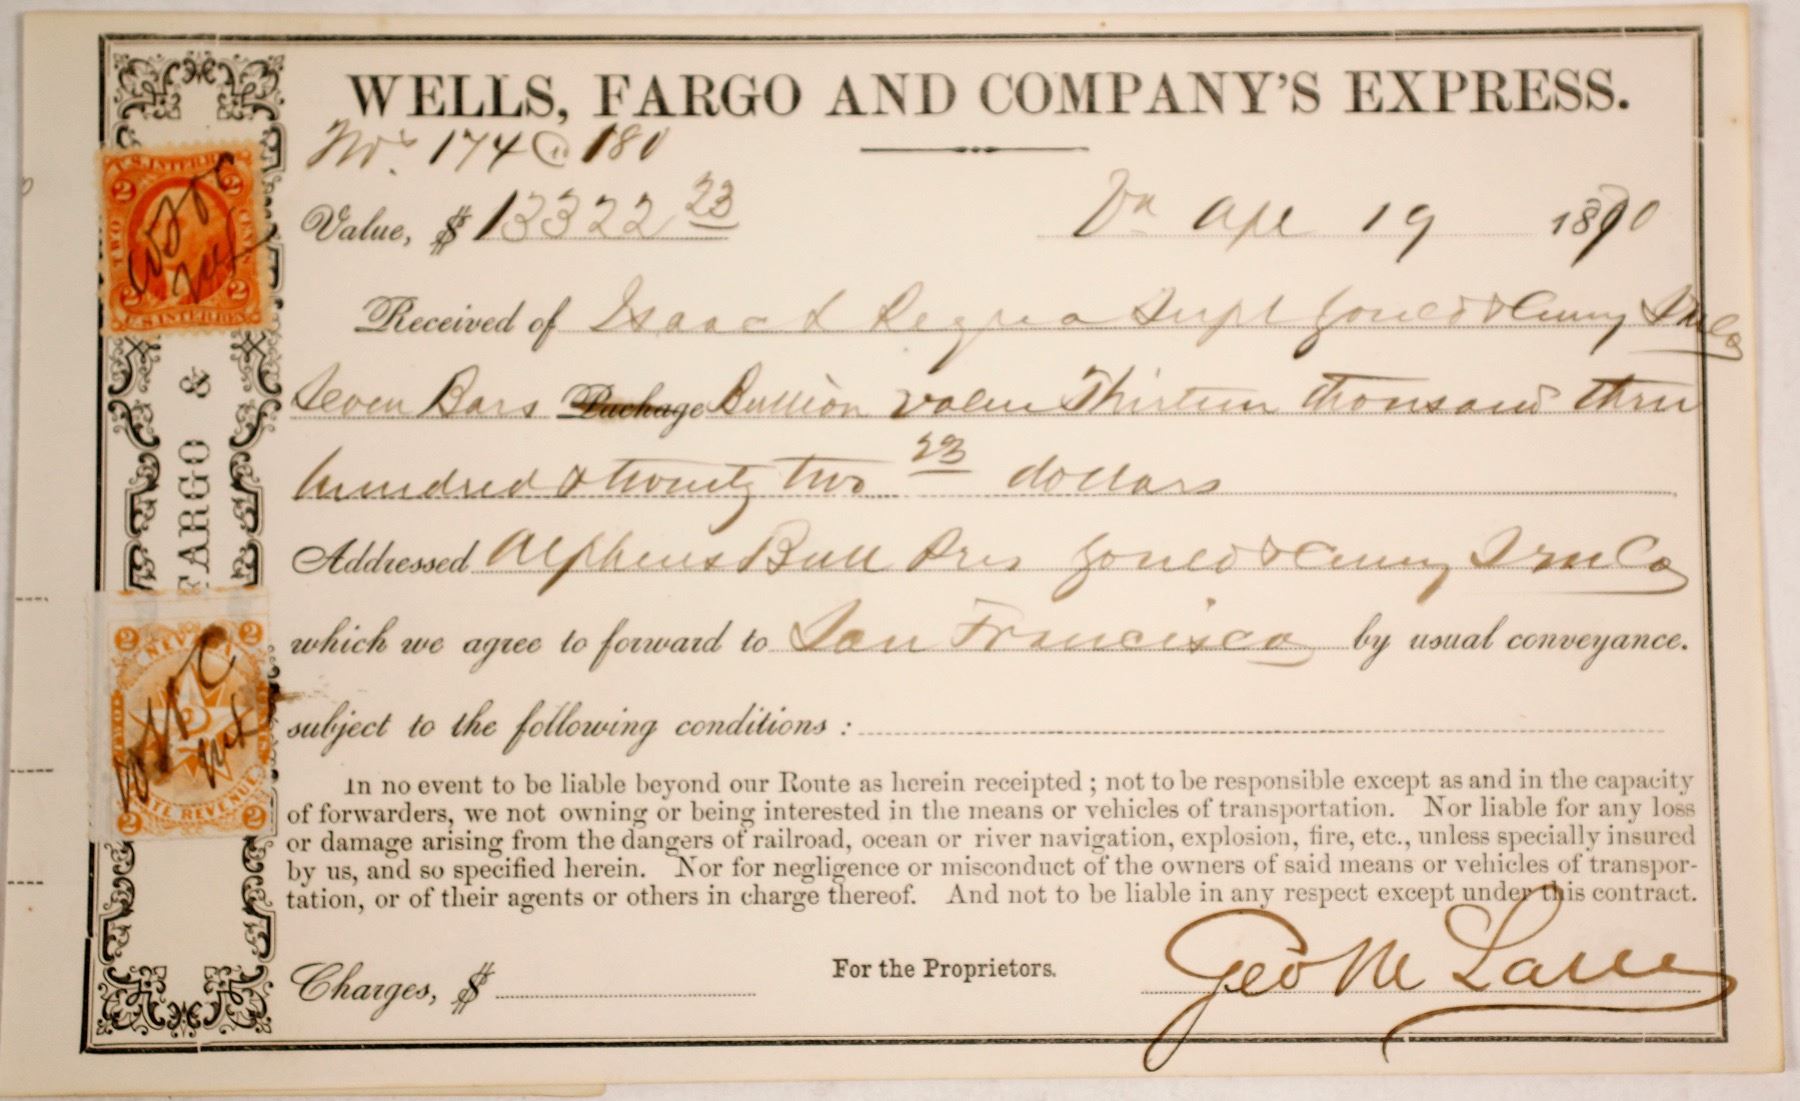 WELLS, FARGO AND COMPANY'S EXPRESS.
Nos. 174 @ 180
Value, $ 13322 23 Va Apl 19 1870
Received of Isaac L Requa Supt Gould & Curry S M Co
Seven Bars Package Bullion value Thirteen thousand three
hundred & twenty two 23 dollars
Addressed Alpheus Bull Pres Gould & Curry S M Co
which we agree to forward to San Francisco by usual conveyance.
subject to the following conditions :
In no event to be liable beyond our Route as herein receipted ; not to be responsible except as and in the capacity
of forwarders, we not owning or being interested in the means or vehicles of transportation. Nor liable for any loss
or damage arising from the dangers of railroad, ocean or river navigation, explosion, fire, etc., unless specially insured
by us, and so specified herein. Nor for negligence or misconduct of the owners of said means or vehicles of transpor-
tation, or of their agents or others in charge thereof. And not to be liable in any respect except under this contract.
Charges, $ For the Proprietors. Geo M
FARGO &
U.S. INTER REV
2 2
TWO CENTS
2 2
U.S. INTER REV
2 NEVADA 2
TWO CENTS
2
2 STATE REVENUE 2